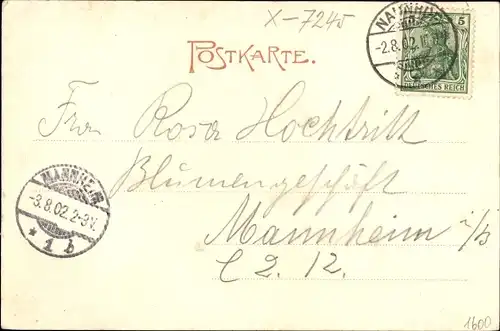 X-7245
POSTKARTE.
-2.8.02.
5
DEUTSCHES REICH
Frau Rosa Hochtritt
Blumengeschäft
MANNHEIM
-3.8.02.2-3V.
* 1 b
Mannheim i/B
C 2. 12.
1600